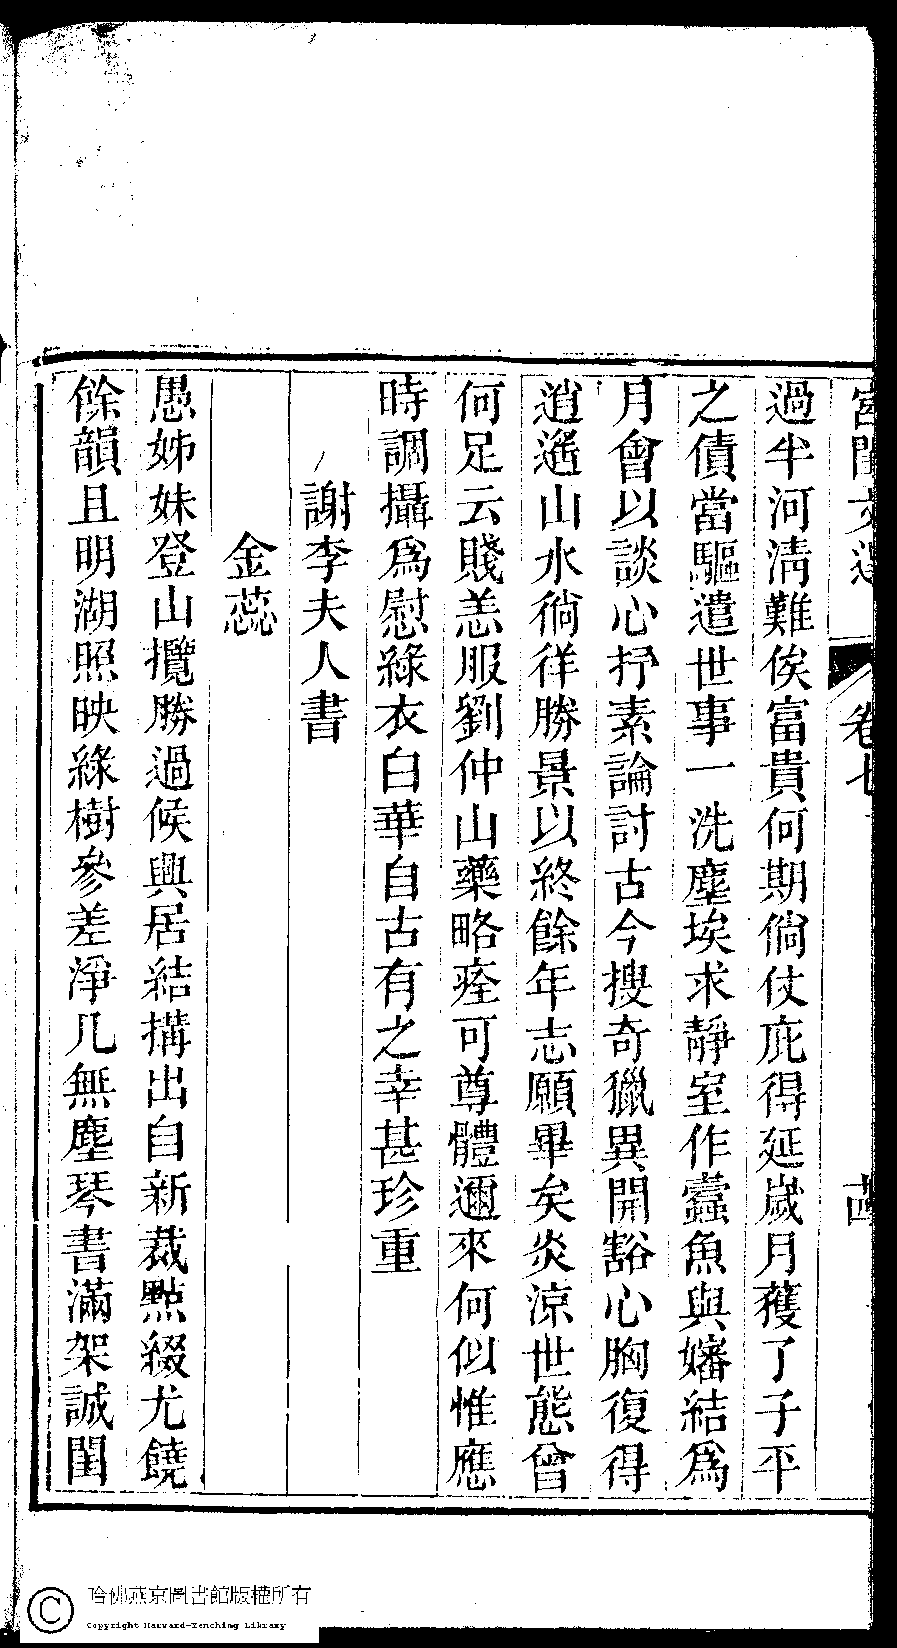 宮閨文選 卷七 十四
過半河淸難俟富貴何期倘仗庇得延歲月獲了子平
之債當驅遣世事一洗塵埃求靜室作蠹魚與嬸結爲
月會以談心抒素論討古今搜奇獵異開豁心胸復得
逍遙山水徜徉勝景以終餘年志願畢矣炎涼世態曾
何足云賤恙服劉仲山藥略痊可尊體邇來何似惟應
時調攝爲慰綠衣白華自古有之幸甚珍重
謝李夫人書
金蕊
愚姊妹登山攬勝過候興居結搆出自新裁點綴尤饒
餘韻且明湖照映綠樹參差淨几無塵琴書滿架誠閨
哈佛燕京圖書館版權所有
Copyright Harvard-Yenching Library